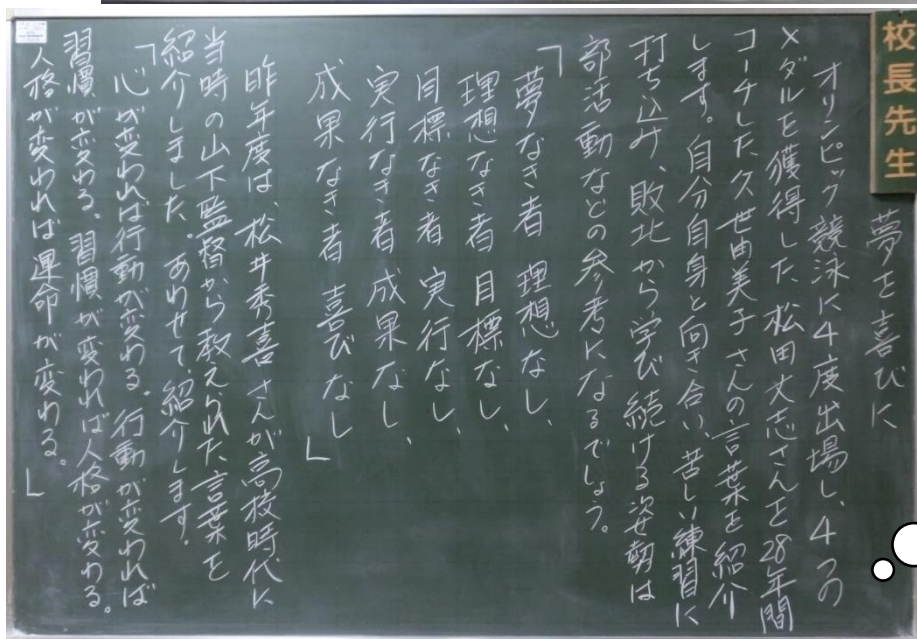 校長先生
夢を喜びに
オリンピック競泳に4度出場し、4つの
メダルを獲得した松田丈志さんを28年間
コーチした久世由美子さんの言葉を紹介
します。自分自身と向き合い、苦しい練習に
打ち込み、敗北から学び続ける姿勢は
部活動などの参考になるでしょう。
「夢なき者 理想なし、
理想なき者 目標なし、
目標なき者 実行なし、
実行なき者 成果なし、
成果なき者 喜びなし」
昨年度は、松井秀喜さんが高校時代に
当時の山下監督から教えられた言葉を
紹介しました。あわせて、紹介します。
「心が変われば行動が変わる。行動が変われば
習慣が変わる。習慣が変われば人格が変わる。
人格が変われば運命が変わる。」